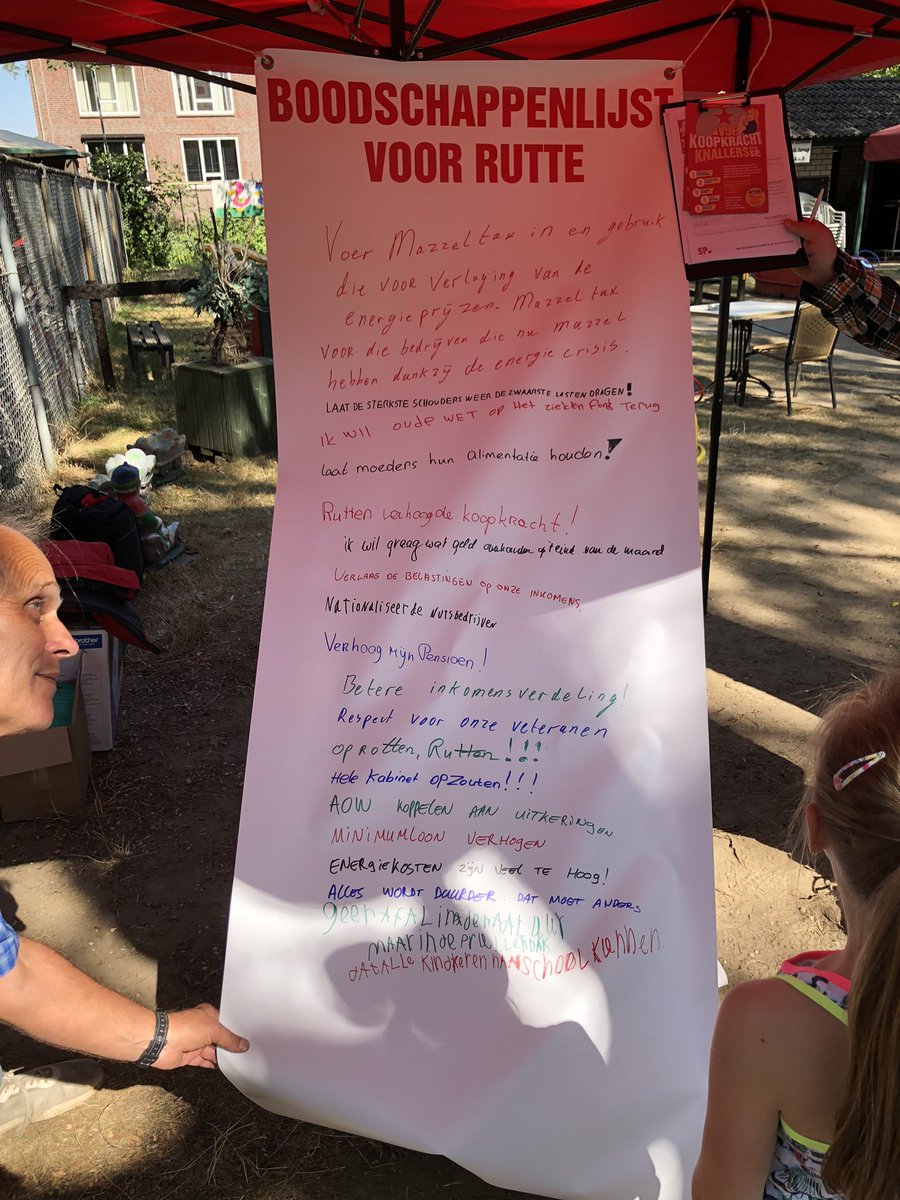 BOODSCHAPPENLIJST
VOOR RUTTE
KOOPKRACHT
KNALLERS
SP.
Voer Mazzeltax in en gebruik
die voor verlaging van de
energieprijzen. Mazzeltax
voor die bedrijven die nu mazzel
hebben dankzij de energie crisis.
LAAT DE STERKSTE SCHOUDERS WEER DE ZWAARSTE LASTEN DRAGEN!
ik wil oude wet op het zieken fonds terug
laat moeders hun alimentatie houden!
Rutten verhoog de koopkracht!
ik wil graag wat geld overhouden op't eind van de maand
VERLAAG DE BELASTINGEN OP ONZE INKOMENS.
Nationaliseer de nutsbedrijven
Verhoog mijn Pensioen!
Betere inkomensverdeling!
Respect voor onze veteranen
oprotten, Rutten!!!
Hele Kabinet opzouten!!!
AOW KOPPELEN AAN UITKERINGEN
MINIMUMLOON VERHOGEN
ENERGIEKOSTEN ZIJN VEEL TE HOOG!
ALLES WORDT DUURDER: DAT MOET ANDERS
geen AFAL in de nAAtuur
maar in de prullenbak
dat ALLE kinderen naar SCHOOL kunnen.
brother